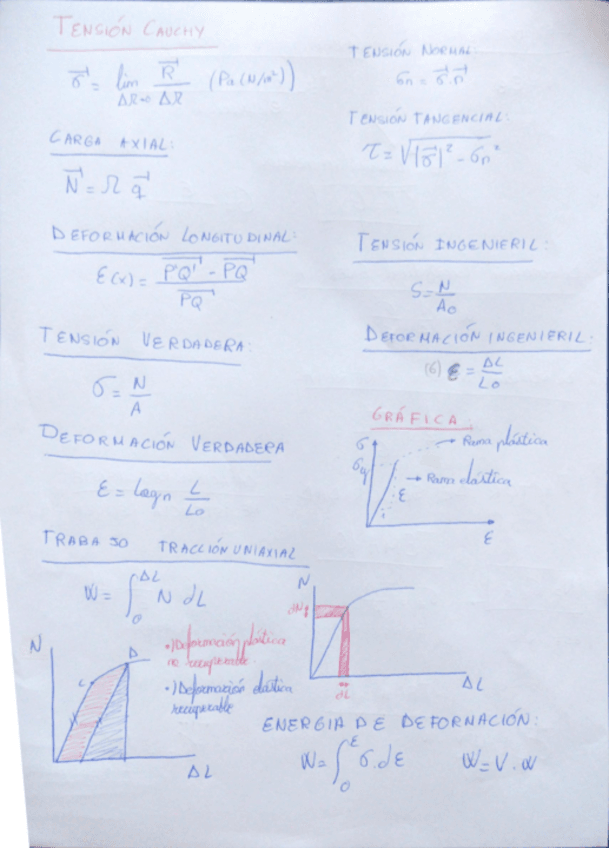 TENSIÓN CAUCHY
σ⃗ = lim ΔΩ→0 R⃗/ΔΩ (Pa (N/m²))
TENSIÓN NORMAL:
σn = σ⃗.n⃗
TENSIÓN TANGENCIAL:
τ = √|σ⃗|² - σn²
CARGA AXIAL:
N⃗ = Ω q⃗
DEFORMACIÓN LONGITUDINAL:
ε(x) = P'Q' - PQ / PQ
TENSIÓN INGENIERIL:
S = N/A₀
TENSIÓN VERDADERA:
σ = N/A
DEFORMACIÓN INGENIERIL:
(6) e = ΔL/L₀
DEFORMACIÓN VERDADERA
ε = logn L/L₀
GRÁFICA:
σ
σy
→ Rama plástica
→ Rama elástica
E
ε
TRABAJO TRACCIÓN UNIAXIAL
W = ∫₀^ΔL N dL
N
dN
dL
ΔL
N
C
D
ΔL
•) Deformación plástica
no recuperable.
•) Deformación elástica
recuperable
ENERGIA DE DEFORNACIÓN:
W = ∫₀^ε σ.dε
W = V . w